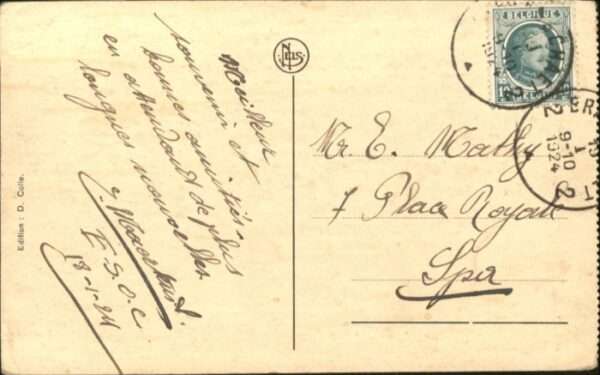 Meilleur
souvenir et
bonnes amitiés
en attendant de plus
longues nouvelles.
E.S.O.C.
18-1-24
Edition : D. Colle.
Nels
BELGIQUE
9-10
1924
Mr. E. Mathy
7 Place Royale
Spa